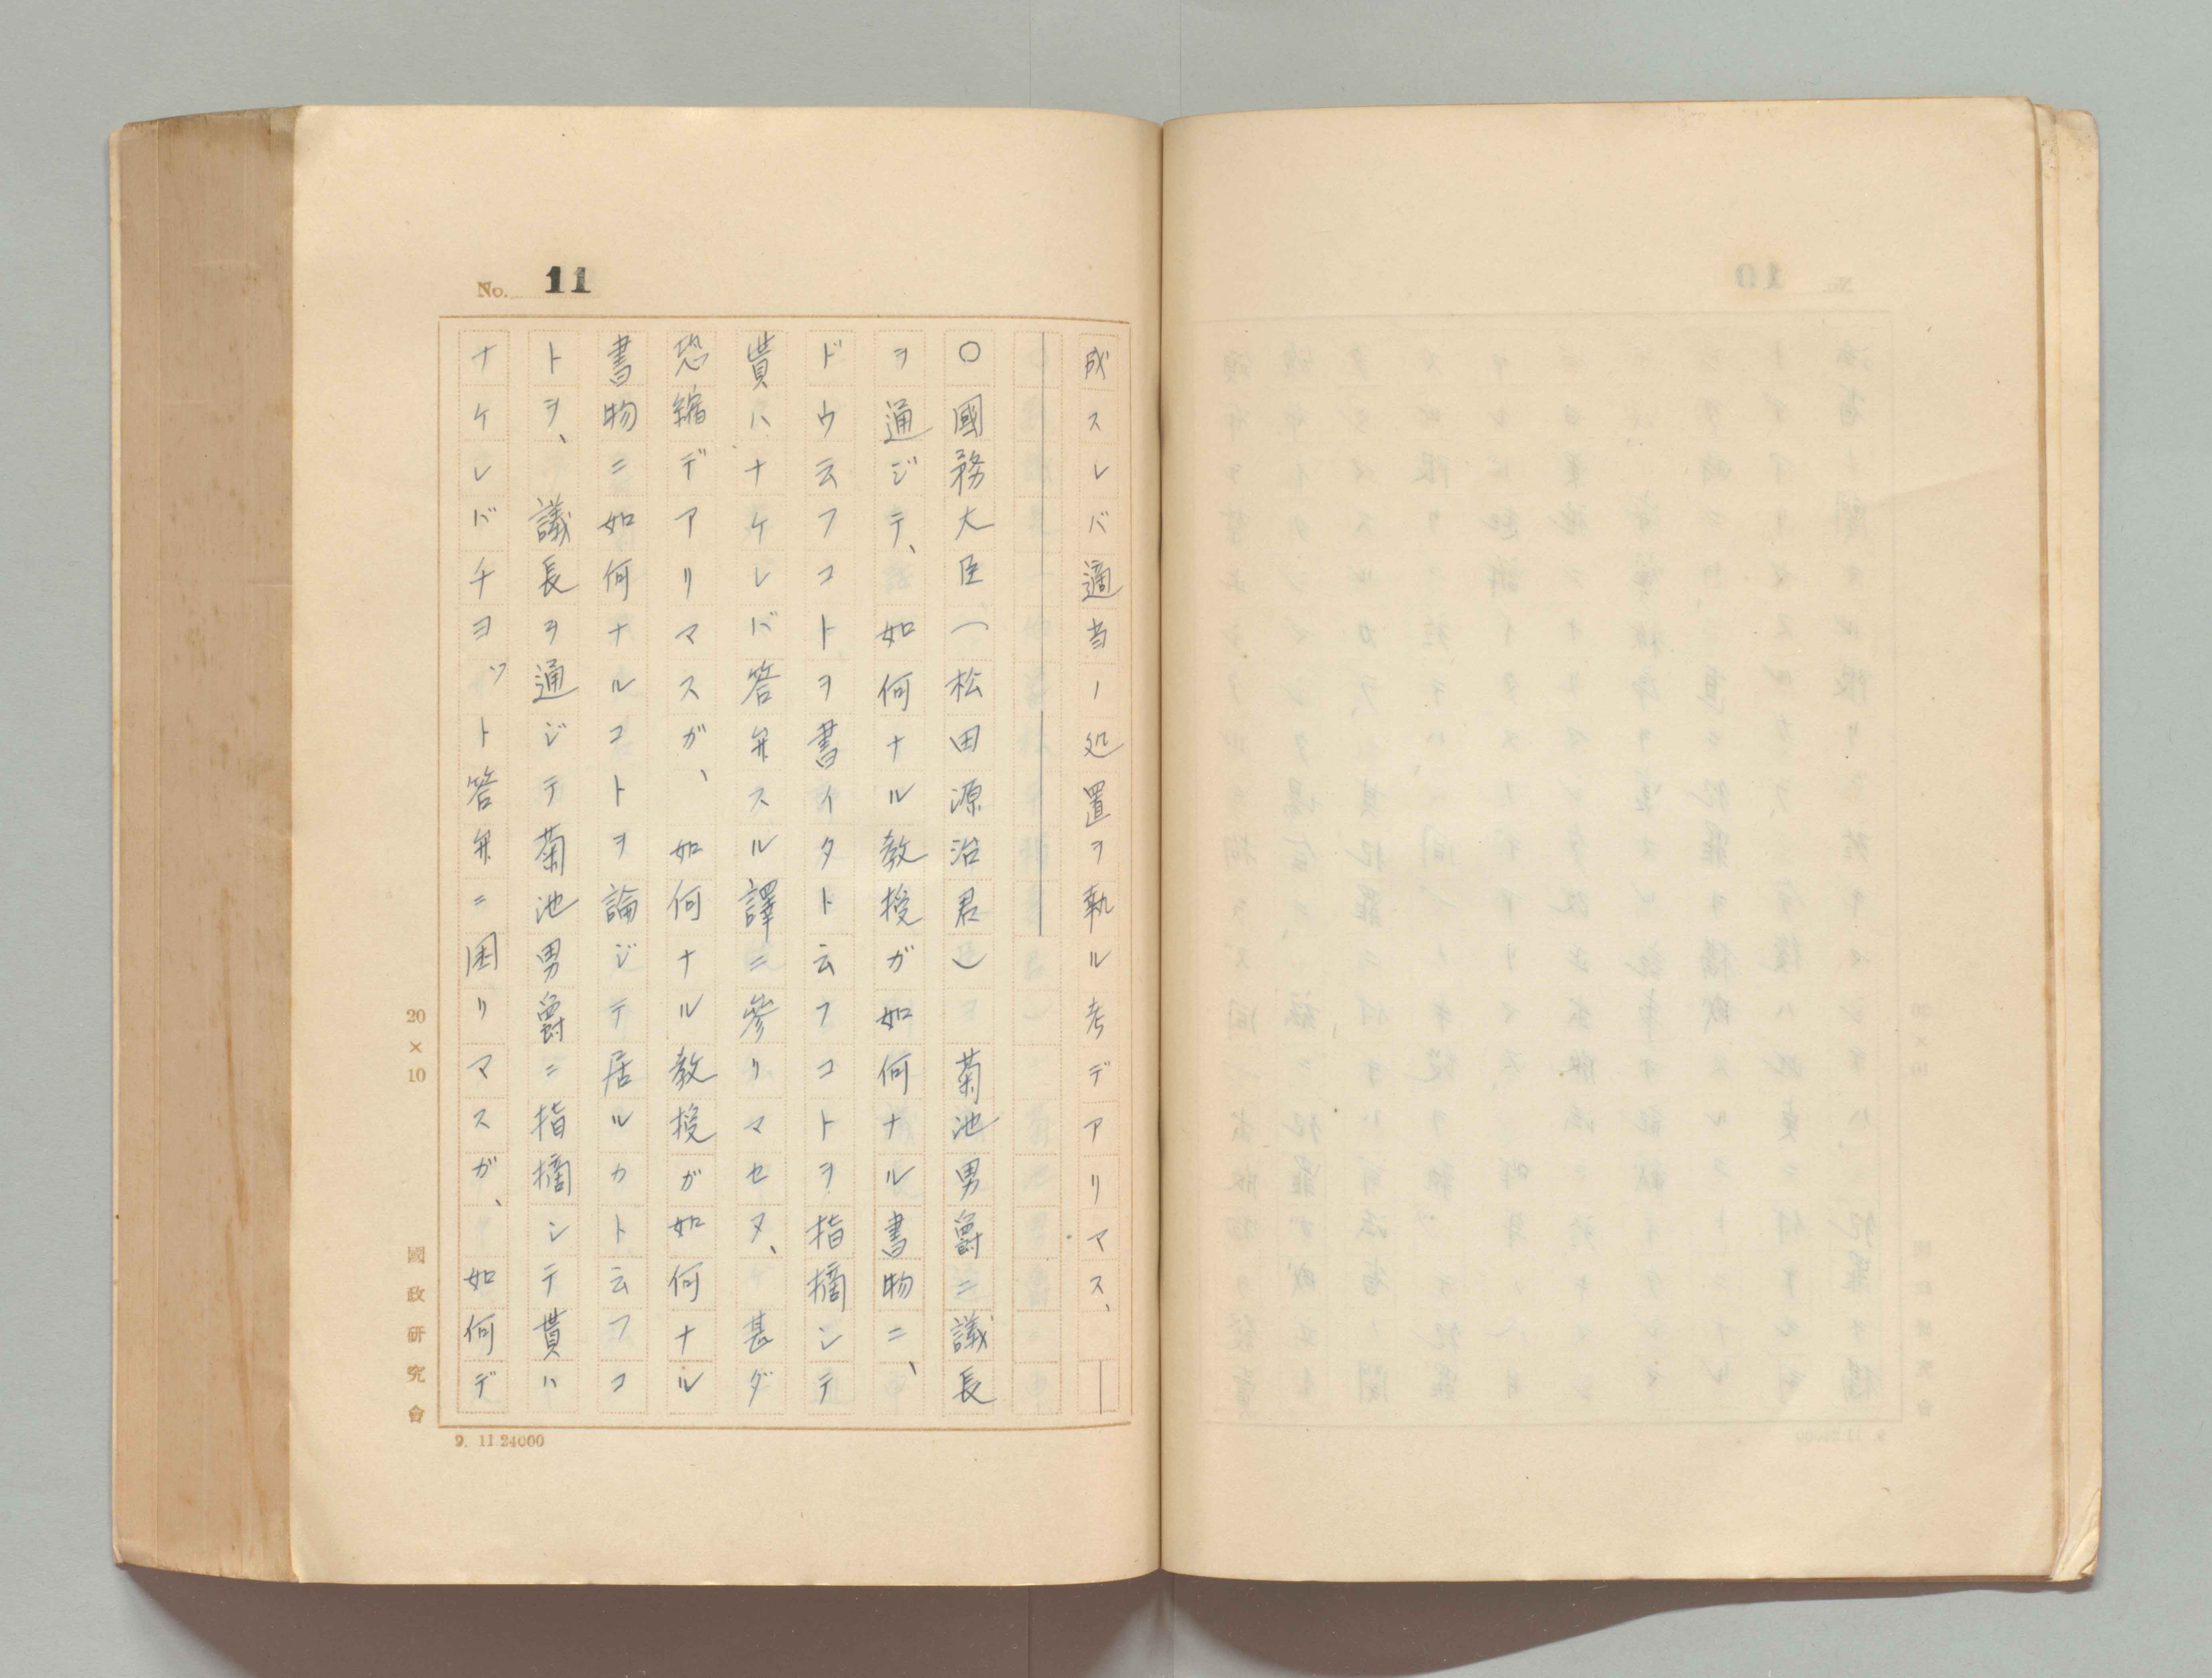 No. 11
成スレバ適当ノ処置ヲ執ル考デアリマス、―
○國務大臣（松田源治君） 菊池男爵ニ議長
ヲ通ジテ、如何ナル教授ガ如何ナル書物ニ、
ドウ云フコトヲ書イタト云フコトヲ指摘シテ
貰ハナケレバ答弁スル譯ニ參リマセヌ、甚ダ
恐縮デアリマスガ、如何ナル教授ガ如何ナル
書物ニ如何ナルコトヲ論ジテ居ルカト云フコ
トヲ、議長ヲ通ジテ菊池男爵ニ指摘シテ貰ハ
ナケレバチヨツト答弁ニ困リマスガ、如何デ
20×10
國政研究會
9. 11.24000